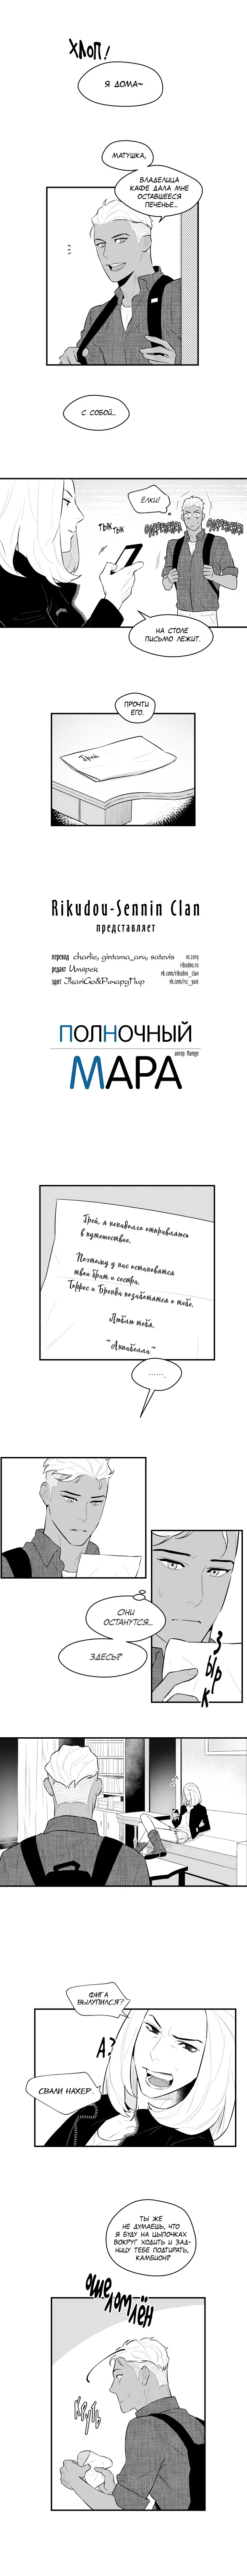 ХЛОП!
Я ДОМА~
МАТУШКА,
ВЛАДЕЛИЦА
КАФЕ ДАЛА МНЕ
ОСТАВШЕЕСЯ
ПЕЧЕНЬЕ...
С СОБОЙ...
ЁЛКИ!
ТЫК
ТЫК
НА СТОЛЕ
ПИСЬМО ЛЕЖИТ.
ПРОЧТИ
ЕГО.
Грей
Rikudou-Sennin Clan
представляет
перевод charlie, gintama_aru, satevis
10.2019
rikudou.ru
редакт Имярек
vk.com/rikudou_clan
эдит IkariGo&РичардГир
vk.com/rsc_yaoi
ПОЛНОЧНЫЙ
автор: Mango
МАРА
Грей, я ненадолго отправляюсь
в путешествие.
Поэтому у нас остановятся
твои брат и сестра.
Торрес и Бренда позаботятся о тебе.
Люблю тебя.
~Аннабелла~
.......
ОНИ
ОСТАНУТСЯ...
ЗДЕСЬ?
ЗЫРК
ФИГА
ВЫЛУПИЛСЯ?
А?
СВАЛИ НАХЕР.
ТЫ ЖЕ
НЕ ДУМАЕШЬ, ЧТО
Я БУДУ НА ЦЫПОЧКАХ
ВОКРУГ ХОДИТЬ И ЗАД-
НИЦУ ТЕБЕ ПОДТИРАТЬ,
КАМБИОН?
ОШЕЛОМЛЁН
КРУТЬ